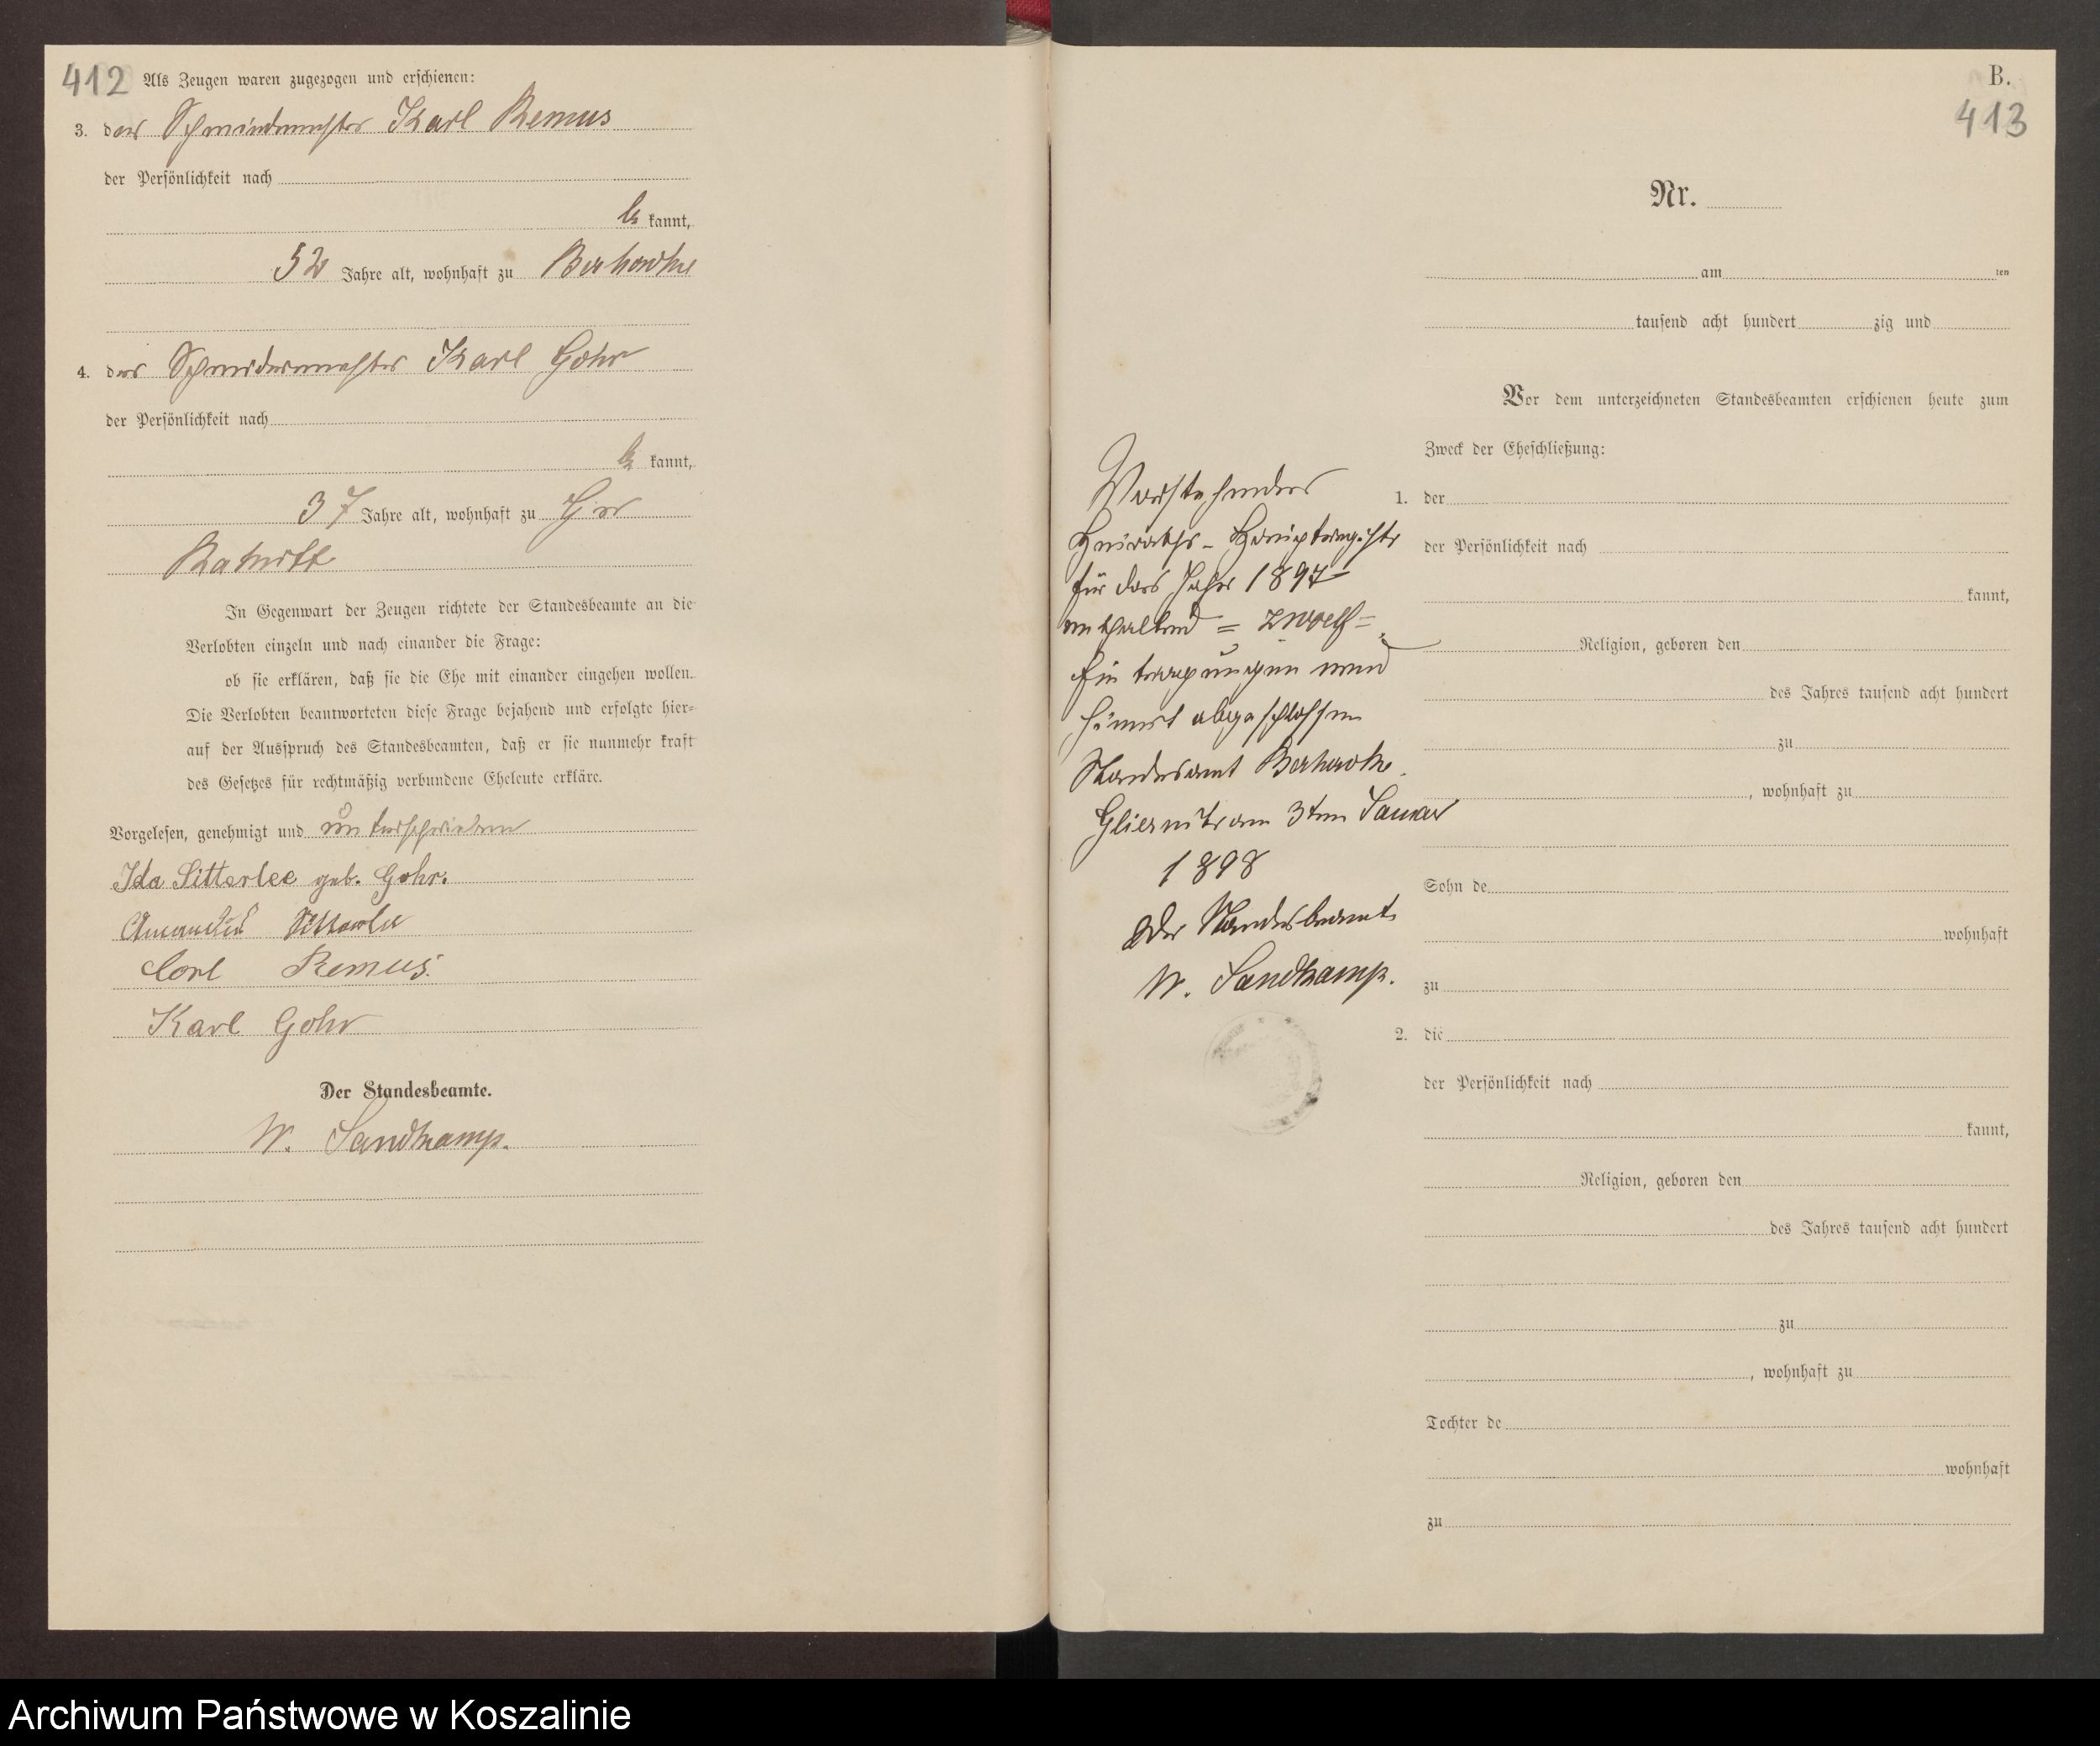 412 Als Zeugen waren zugezogen und erschienen:
3. der Schmiedemeister Karl Remus
der Persönlichkeit nach
be kannt,
52 Jahre alt, wohnhaft zu
4. der Schneidermeister Karl Gohr
der Persönlichkeit nach
be kannt,
37 Jahre alt, wohnhaft zu Gr
Ratteick
In Gegenwart der Zeugen richtete der Standesbeamte an die
Verlobten einzeln und nach einander die Frage:
ob sie erklären, daß sie die Ehe mit einander eingehen wollen.
Die Verlobten beantworteten diese Frage bejahend und erfolgte hier-
auf der Ausspruch des Standesbeamten, daß er sie nunmehr kraft
des Gesetzes für rechtmäßig verbundene Eheleute erkläre.
Vorgelesen, genehmigt und unterschrieben
Ida Sitterlee geb. Gohr.
Carl Remus.
Karl Gohr
Der Standesbeamte.
W. Sandkamp.
B.
413
Nr.
am ten
tausend acht hundert zig und
Vor dem unterzeichneten Standesbeamten erschienen heute zum
Zweck der Eheschließung:
1. der
der Persönlichkeit nach
kannt,
Religion, geboren den
des Jahres tausend acht hundert
zu
, wohnhaft zu
Sohn de
wohnhaft
zu
2. die
der Persönlichkeit nach
kannt,
Religion, geboren den
des Jahres tausend acht hundert
zu
, wohnhaft zu
Tochter de
wohnhaft
zu
Vorstehendes
Heiraths-Hauptregister
für das Jahr 1897
enthaltend = zwoelf =
Eintragungen wird
hiermit abgeschlossen
Standesamt
am 3ten Januar
1898
Der Standesbeamte
W. Sandkamp.
Archiwum Państwowe w Koszalinie